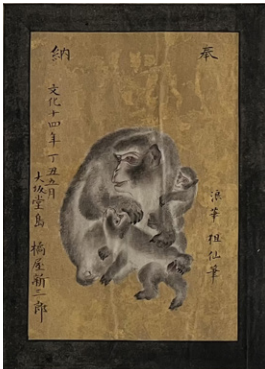 奉
納
浪華 祖仙筆
文化十四年丁丑五月
大坂堂島 橘屋新三郎